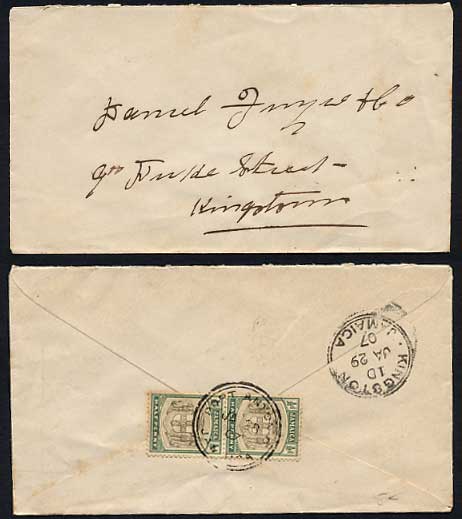 Daniel Finzi & Co
9 Duke Street
Kingston
KINGSTON
1D
JA 29
07
JAMAICA
JAMAICA
HALFPENNY
JAMAICA
HALFPENNY